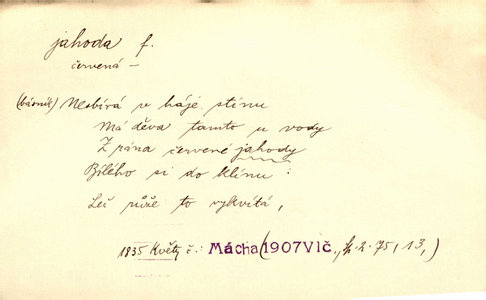 jahoda f.
červená –
(básník) Nesbírá v háje stínu
Má děva tamto u vody
Z rána červené jahody
Bílého si do klínu :
Leč růže to vykvítá,
1835 Květy č.: Mácha (1907Vlč., 2. 75, 13,)